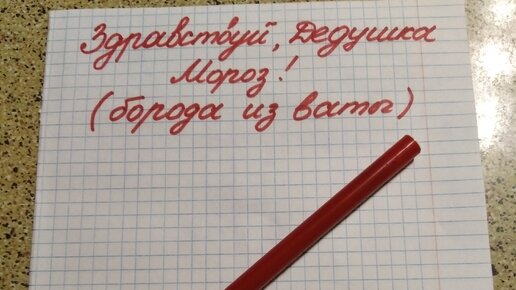 Здравствуй, Дедушка
Мороз!
(борода из ваты)